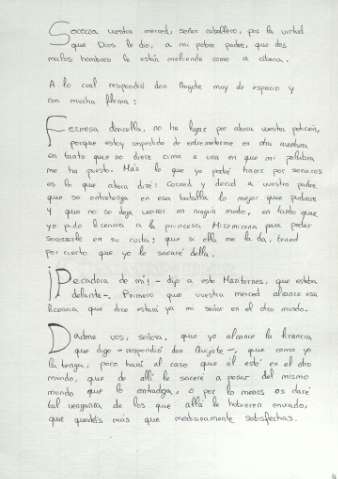 Socorra vuestra merced, señor caballero, por la virtud
que Dios le dio, a mi pobre padre, que dos
malos hombres le están moliendo como a cibera.
A lo cual respondió don Quijote muy de espacio y
con mucha flema:
Fermosa doncella, no ha lugar por ahora vuestra petición,
porque estoy impedido de entremeterme en otra aventura
en tanto que no diere cima a una en que mi palabra
me ha puesto. Mas lo que yo podré hacer por serviros
es lo que ahora diré: Corred y decid a vuestro padre
que se entretenga en esa batalla lo mejor que pudiere
y que no se deje vencer en ningún modo, en tanto que
yo pido licencia a la princesa Micomicona para poder
socorrerle en su cuita; que si ella me la da, tened
por cierto que yo le sacaré della.
¡Pecadora de mí! - dijo a esto Maritornes, que estaba
delante-. Primero que vuestra merced alcance esa
licencia que dice estará ya mi señor en el otro mundo.
Dadme vos, señora, que yo alcance la licencia
que digo - respondió don Quijote -, que como yo
la tenga, poco hará al caso que él esté en el otro
mundo, que de allí le sacaré a pesar del mismo
mundo que lo contradiga, o por lo menos os daré
tal venganza de los que allá le hubieren enviado,
que quedéis más que medianamente satisfechas.